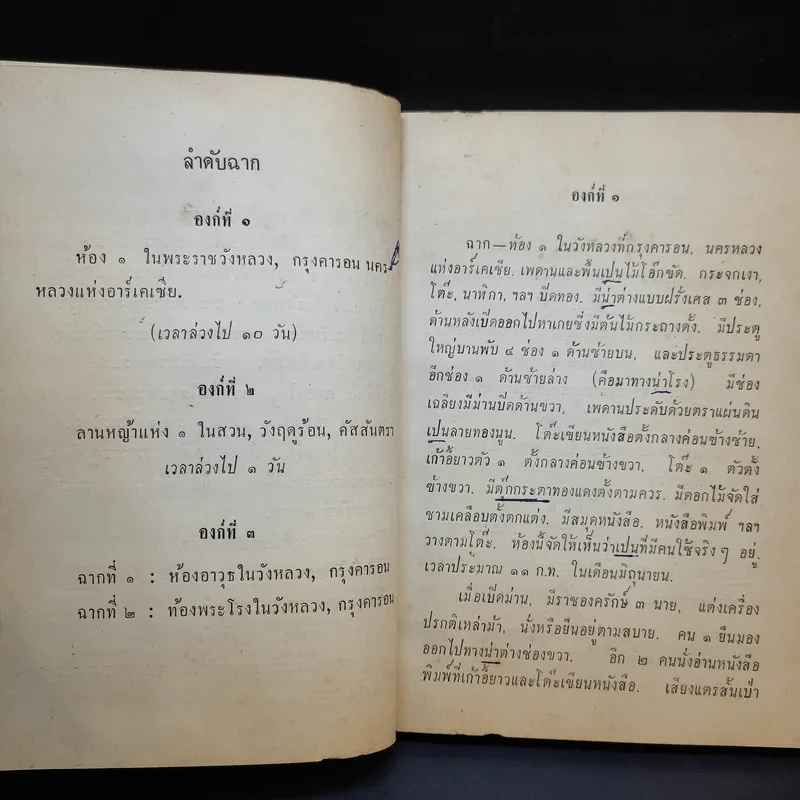 ลำดับฉาก
องก์ที่ ๑
ห้อง ๑ ในพระราชวังหลวง, กรุงคารอน นคร-
หลวงแห่งอาร์เคเซีย.
(เวลาล่วงไป ๑๐ วัน)
องก์ที่ ๒
ลานหญ้าแห่ง ๑ ในสวน, วังฤดูร้อน, คัสสันตรา
เวลาล่วงไป ๑ วัน
องก์ที่ ๓
ฉากที่ ๑ : ห้องอาวุธในวังหลวง, กรุงคารอน
ฉากที่ ๒ : ท้องพระโรงในวังหลวง, กรุงคารอน
องก์ที่ ๑
ฉาก—ห้อง ๑ ในวังหลวงที่กรุงคารอน, นครหลวง
แห่งอาร์เคเซีย. เพดานและพื้นเปนไม้โอ๊กขัด. กระจกเงา,
โต๊ะ, นาฬิกา, ฯลฯ ปิดทอง. มีน่าต่างแบบฝรั่งเศส ๓ ช่อง,
ด้านหลังเปิดออกไปหาเกยซึ่งมีต้นไม้กระถางตั้ง. มีประตู
ใหญ่บานพับ ๔ ช่อง ๑ ด้านซ้ายบน, และประตูธรรมดา
อีกช่อง ๑ ด้านซ้ายล่าง (คือมาทางน่าโรง) มีช่อง
เฉลียงมีม่านปิดด้านขวา, เพดานประดับด้วยตราแผ่นดิน
เปนลายทองนูน. โต๊ะเขียนหนังสือตั้งกลางค่อนข้างซ้าย,
เก้าอี้ยาวตัว ๑ ตั้งกลางค่อนข้างขวา, โต๊ะ ๑ ตัวตั้ง
ข้างขวา. มีตุ๊กกระตาทองแดงตั้งตามควร. มีดอกไม้จัดใส่
ชามเคลือบตั้งตกแต่ง. มีสมุดหนังสือ. หนังสือพิมพ์ ฯลฯ
วางตามโต๊ะ. ห้องนี้จัดให้เห็นว่าเปนที่มีคนใช้จริง ๆ อยู่.
เวลาประมาณ ๑๑ ก.ท. ในเดือนมิถุนายน.
เมื่อเปิดม่าน, มีราชองครักษ์ ๓ นาย, แต่งเครื่อง
ปรกติเหล่าม้า, นั่งหรือยืนอยู่ตามสบาย. คน ๑ ยืนมอง
ออกไปทางน่าต่างช่องขวา. อีก ๒ คนนั่งอ่านหนังสือ
พิมพ์ที่เก้าอี้ยาวและโต๊ะเขียนหนังสือ. เสียงแตรสั้นเป่า